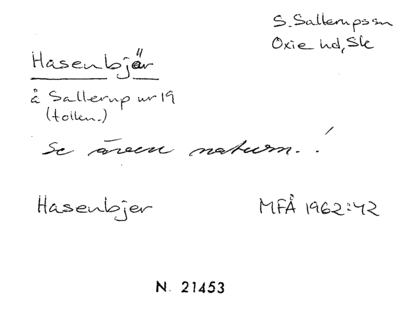 S. Sallerups sn
Oxie hd, Sk
Hasenbjär
å Sallerup nr 19
(tolkn.)
Se även naturn.!
Hasenbjer MFÅ 1962:42
N. 21453